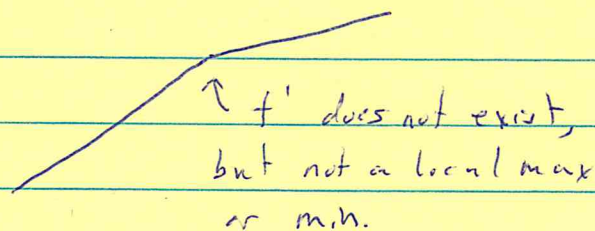 f' does not exist,
but not a local max
or min.